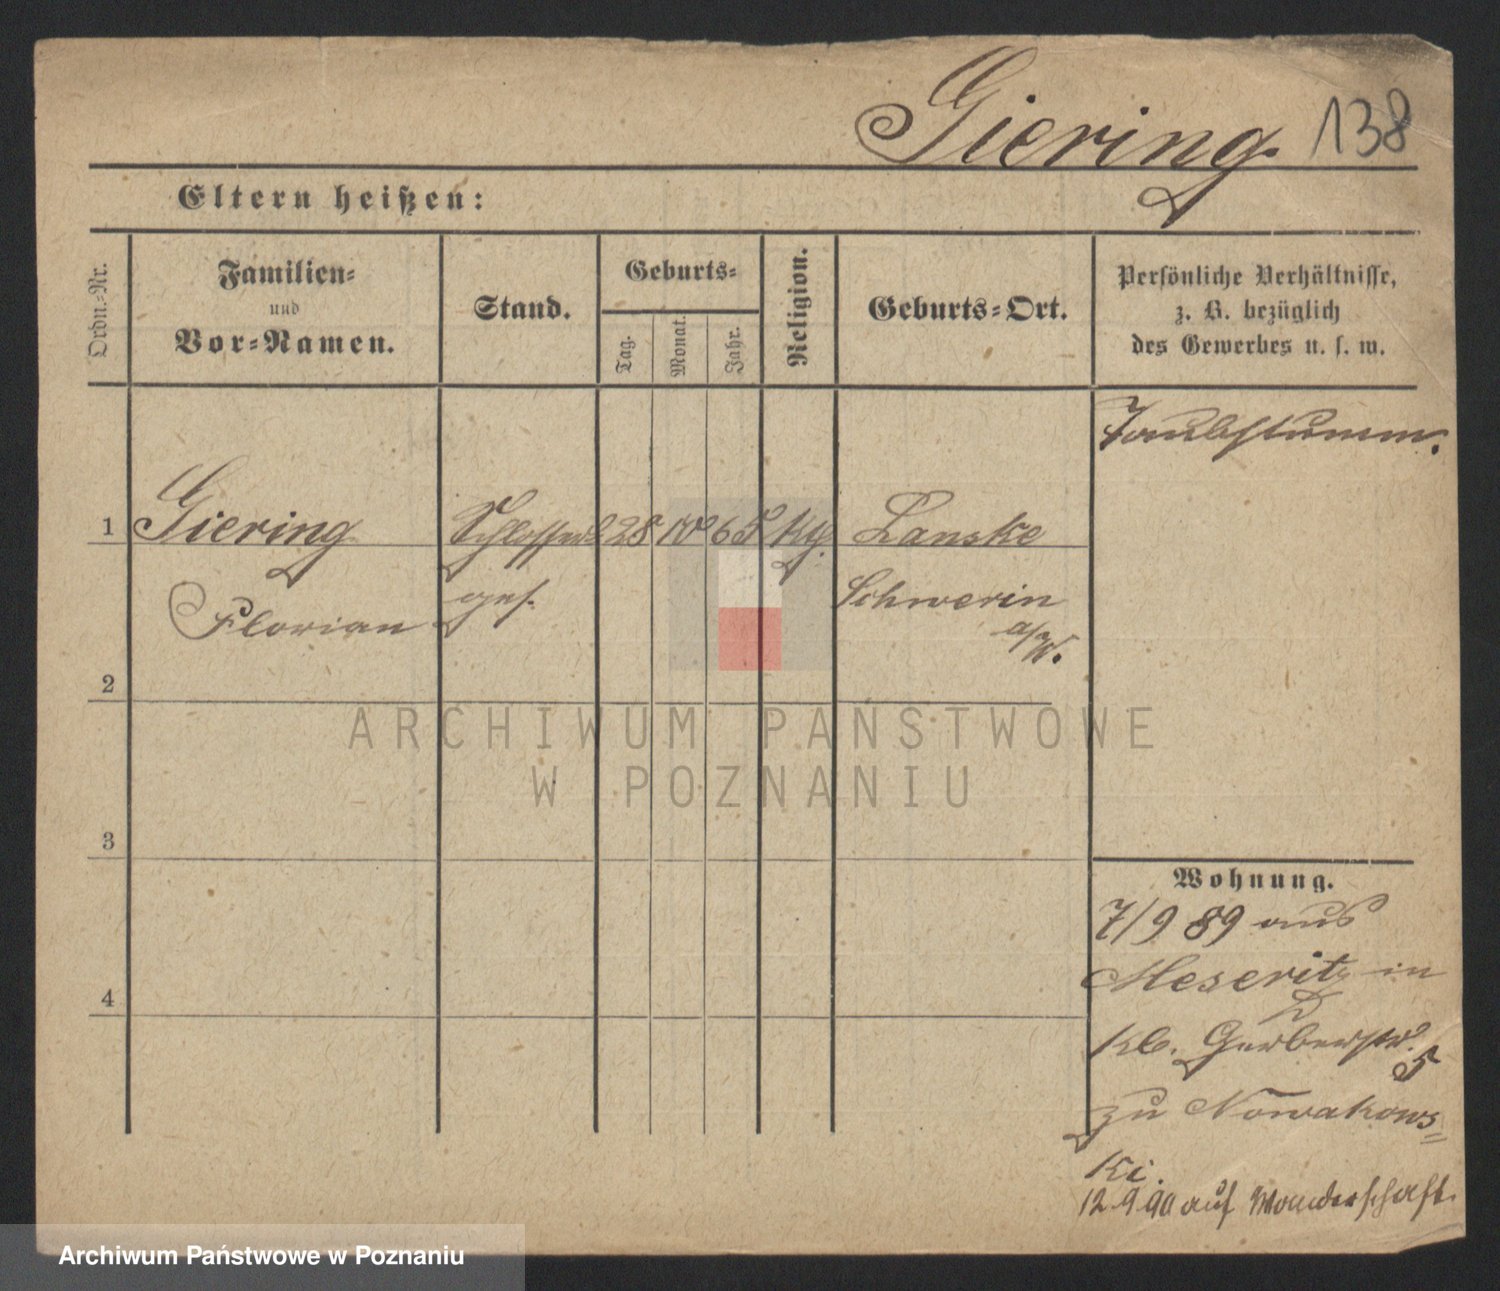 Giering 138
Eltern heißen:
Ordn.-Nr.
Familien-
und
Vor-Namen.
Stand.
Geburts-
Tag.
Monat.
Jahr.
Religion.
Geburts-Ort.
Persönliche Verhältnisse,
z. B. bezüglich
des Gewerbes u. s. w.
Taubstumm.
1 Giering Schlosser 28 IV 65 kg. Lanske
Florian ges. Schwerin
a/W.
2
3
4
Wohnung.
7/9 89 aus
Meseritz in
Kl. Gerberstr.
5
zu Nowakows=
ki.
12.9.90 auf Wanderschaft.
ARCHIWUM PAŃSTWOWE
W POZNANIU
Archiwum Państwowe w Poznaniu